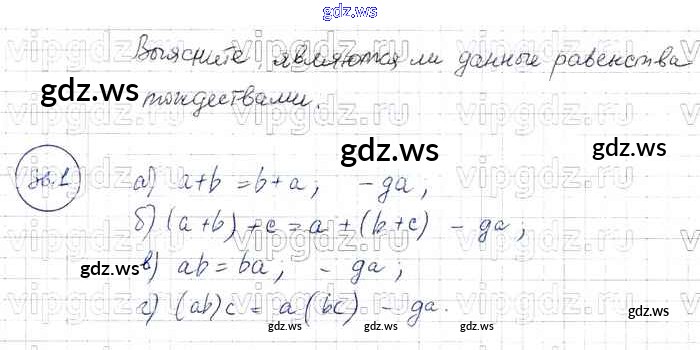 gdz.ws
Выясните, являются ли данные равенства
gdz.ws
тождествами.
gdz.ws
36.1 а) a+b = b+a; - да;
б) (a+b)+c = a+(b+c) - да;
в) ab = ba; - да;
gdz.ws gdz.ws
г) (ab)c = a(bc) - да.
gdz.ws gdz.ws gdz.ws